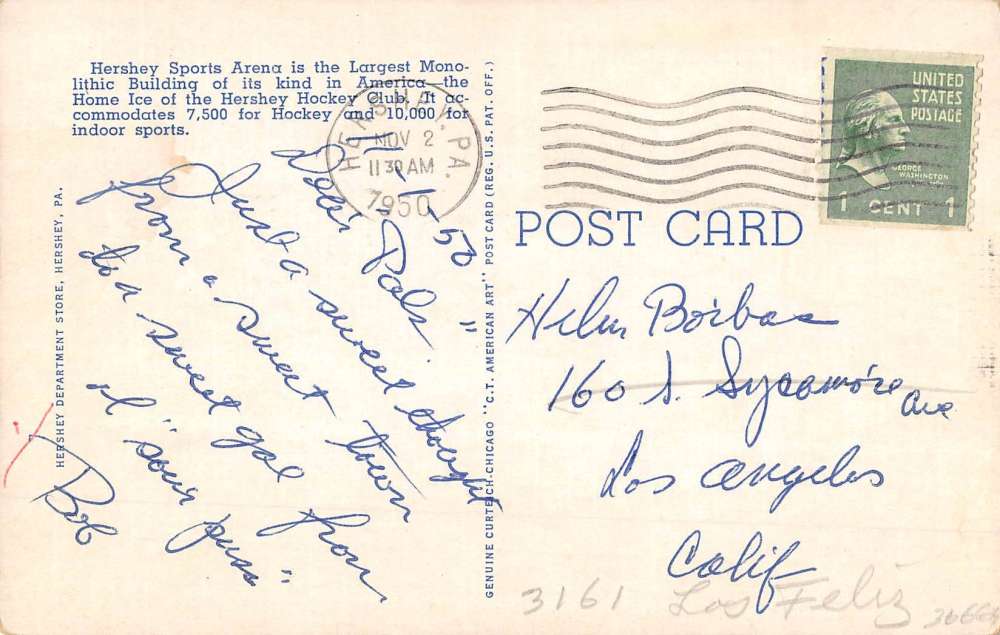 Hershey Sports Arena is the Largest Mono-
lithic Building of its kind in America—the
Home Ice of the Hershey Hockey Club. It ac-
commodates 7,500 for Hockey and 10,000 for
indoor sports.
HERSHEY, PA.
NOV 2
11 30 AM
1950
UNITED
STATES
POSTAGE
GEORGE
WASHINGTON
1 CENT 1
POST CARD
11-1-50
Pals
Just a sweet thought
from a sweet town
to a sweet gal from
ol "sour puss"
Bob
HERSHEY DEPARTMENT STORE, HERSHEY, PA.
GENUINE CURTEICH-CHICAGO "C.T. AMERICAN ART" POST CARD (REG. U.S. PAT. OFF.)
Helen
160 S. Sycamore Ave
Los Angeles
Calif
3161 Los Feliz